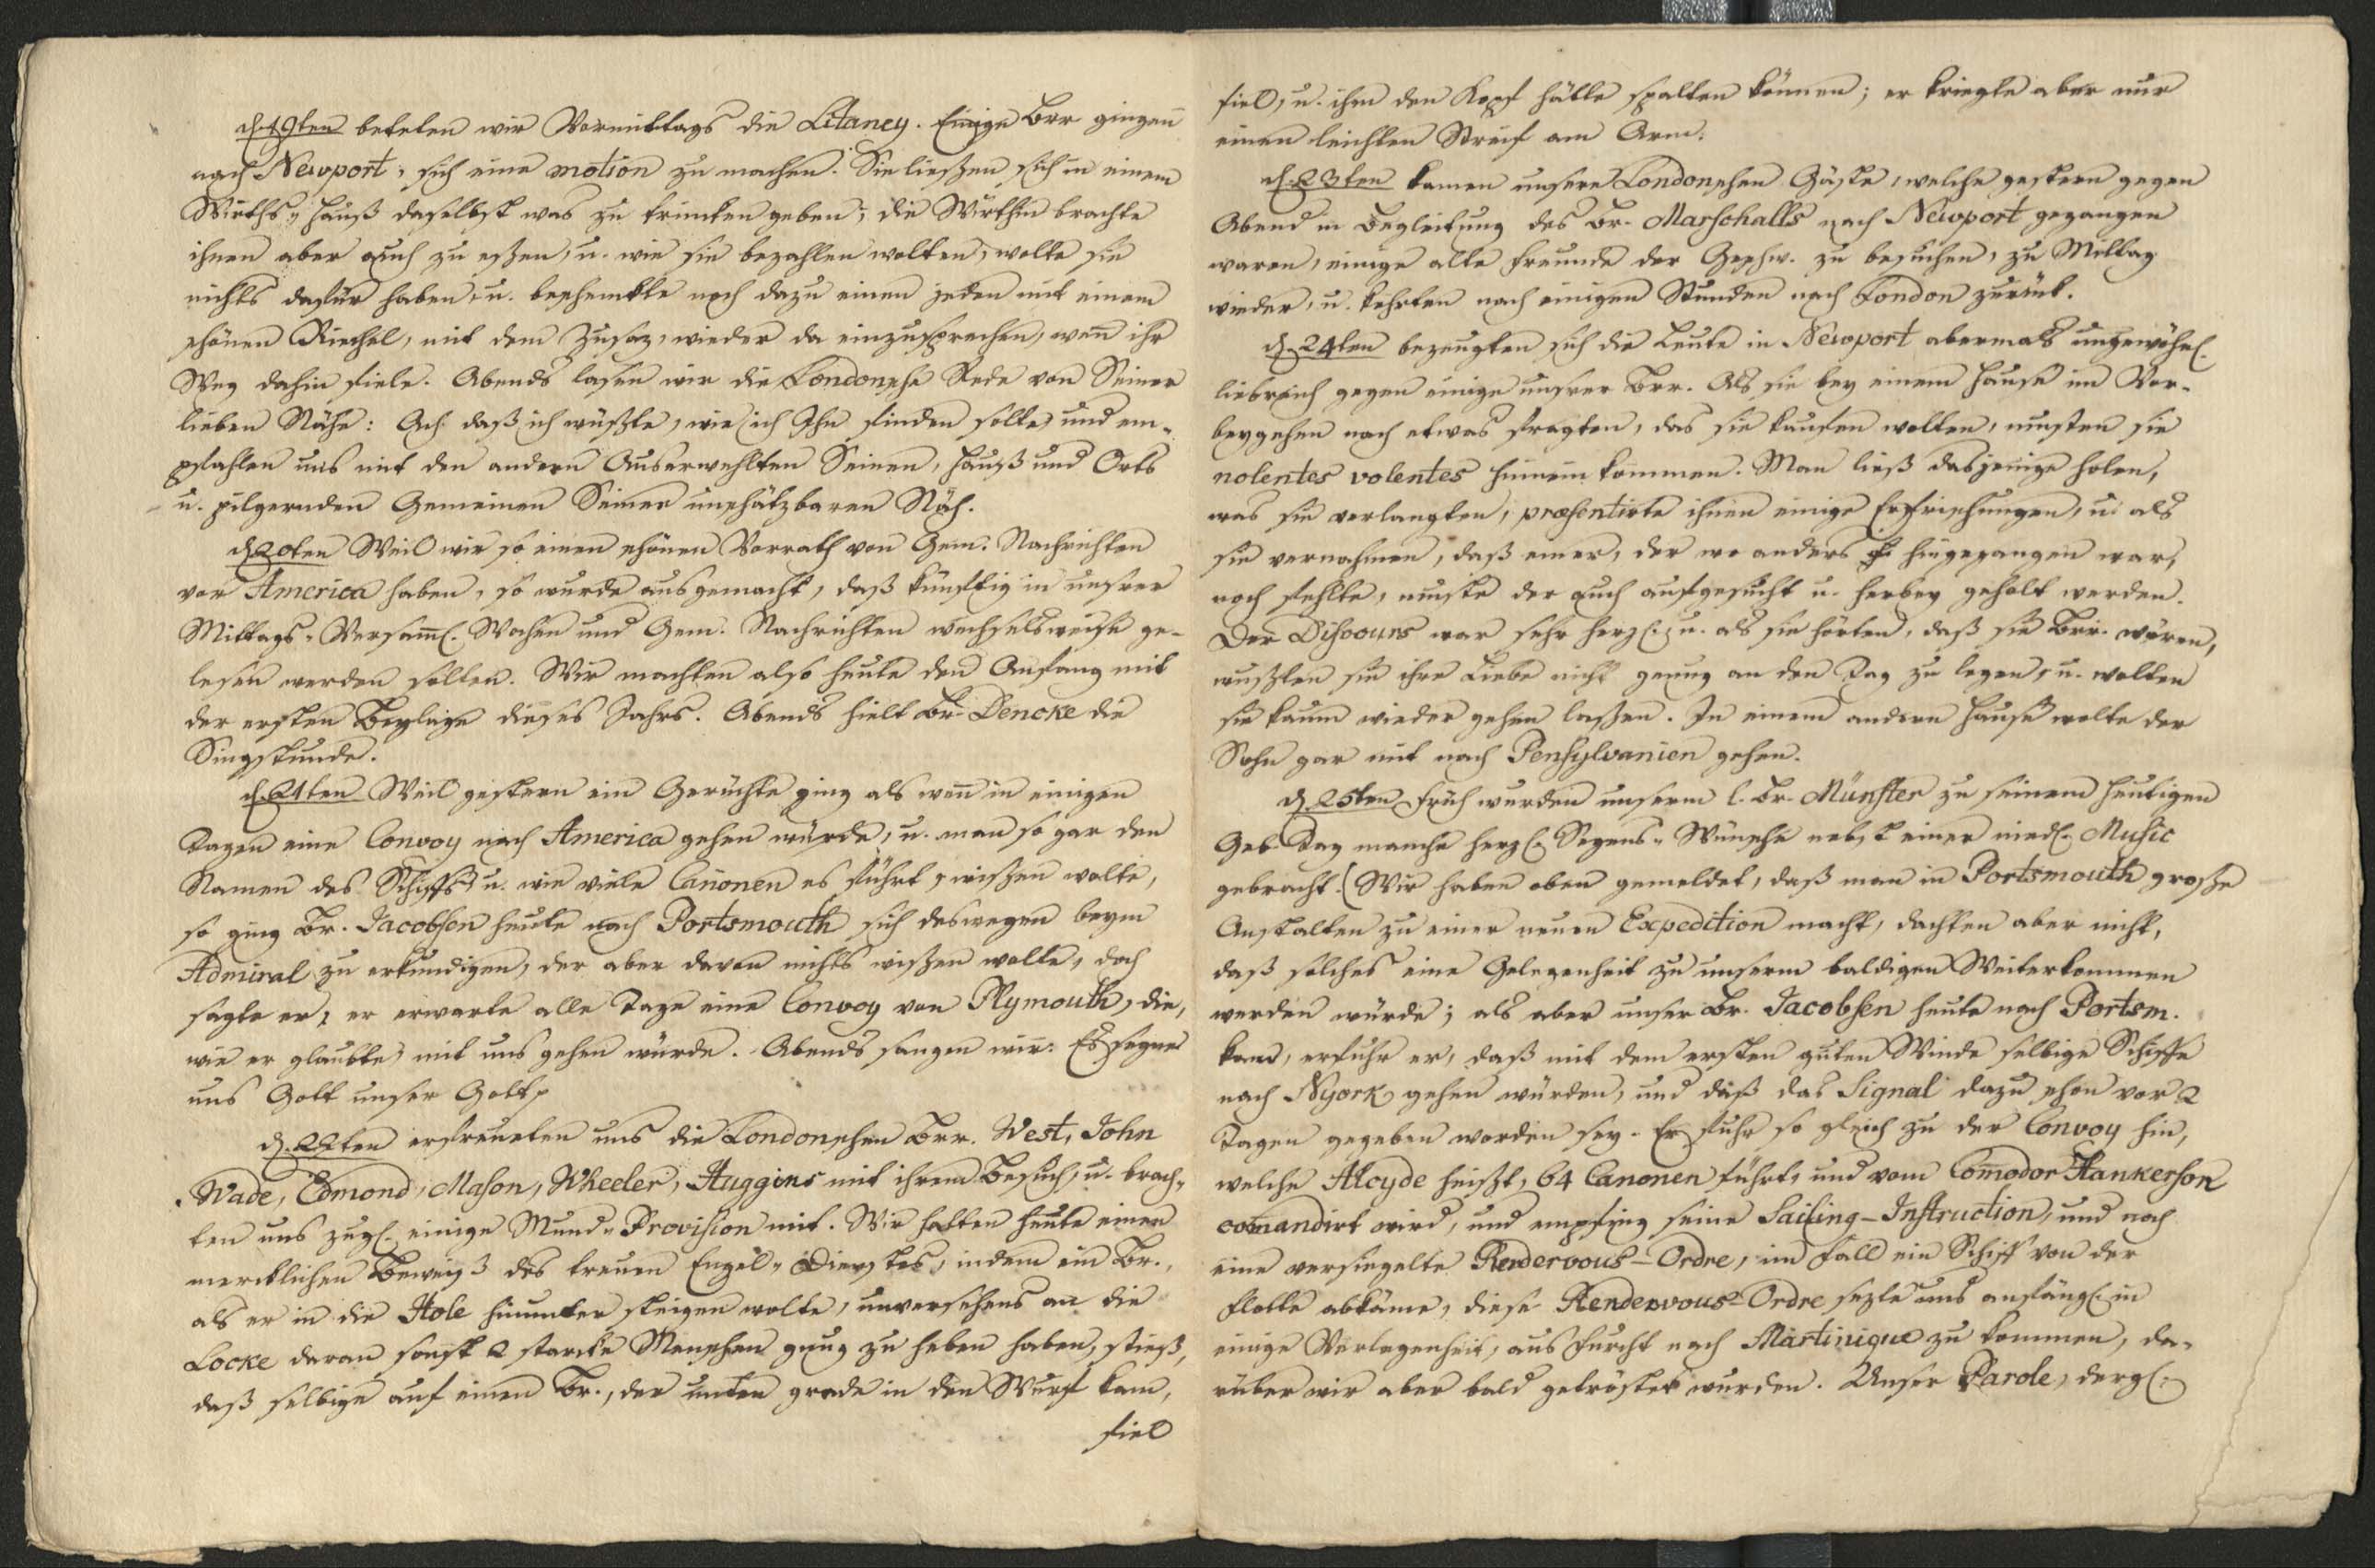 d. 19ten beteten wir Vormittags die Litaney. Einige Brr gingen̄
nach Newport, sich eine motion zu machen. Sie ließen sich in einem
Wirths-Hauß daselbst was zu trincken geben; die Wirthin brachte
ihnen aber auch zu eßen, u. wie sie bezahlen wolten, wolte sie
nichts dafür haben, u. beschenkte noch dazu einen jeden mit einem
schönen Riechel, mit dem Zusaz, wieder da einzusprechen, wen̄ ihr
Weg dahin fiele. Abends lasen wir die Londonsche Rede von Seiner
lieben Nähe: Ach daß ich wüßte, wie ich Ihn finden solte, und em-
pfahlen uns mit den andern Auserwehlten Seinen, Hauß und Orts
u. pilgernden Gemeinen Seiner unschätzbaren Näh.
d. 20ten Weil wir so einen schönen Vorrath von Gem. Nachrichten
vor America haben, so wurde ausgemacht, daß künftig in unsrer
Mittags-Versam̄l. Wochen und Gem. Nachrichten wechselsweise ge-
lesen werden sollen. Wir machten also heute den Anfang mit
der ersten Beylage dieses Jahrs. Abends hielt Br. Dencke die
Singstunde.
d. 21ten Weil gestern ein Gerüchte ging als wen̄ in einigen
Tagen eine Convoy nach America gehen würde, u. man so gar den
Namen des Schiffs u. wie viele Canonen es führt, wißen wolte,
so ging Br. Jacobsen heute nach Portsmouth sich deswegen beym
Admiral zu erkundigen, der aber davon nichts wißen wolte, doch
sagte er, er erwarte alle Tage eine Convoy von Plymouth, die,
wie er glaubte, mit uns gehen würde. Abends sangen wir: Es segne
uns Gott unser Gott p
d. 22ten erfreueten uns die Londonschen Brr. West, John
Wade, Edmond, Mason, Wheeler, Huggins mit ihrem Besuch, u. brach-
ten uns zugl. einige Mund-Provision mit. Wir hatten heute einen
mercklichen Beweiß des treuen Engel-Dienstes, indem ein Br.,
als er in die Hole hinunter steigen wolte, unversehens an die
Locke daran sonst 2 starcke Menschen gnug zu heben haben, stieß,
daß selbige auf einen Br., der unten grade in den Wurf kam,
fiel
fiel, u. ihm den Kopf hätte spalten können; er kriegte aber nur
einen leichten Streif am Arm.
d. 23ten kamen unsere Londonschen Gäste, welche gestern gegen
Abend in Begleitung des Br. Marschalls nach Newport gegangen
waren, einige alte Freunde der Geschw. zu besuchen, zu Mittag
wieder, u. kehrten nach einigen Stunden nach London zurück.
d. 24ten bezeugten sich die Leute in Newport abermals ungewöhnl.
liebreich gegen einige unsrer Brr. Als sie bey einem Hause im Vor-
beygehen nach etwas fragten, das sie kaufen wolten, musten sie
nolentes volentes hinein kommen. Man ließ dasjenige holen,
was sie verlangten, præsentirte ihnen einige Erfrischungen, u. als
sie vernahmen, daß einer, der wo anders hingegangen war,
noch fehlte, muste der auch aufgesucht u. herbey geholt werden.
Der Discours war sehr herzl., u. als sie hörten, daß sie Brr. wären,
wußten sie ihre Liebe nicht genug an den Tag zu legen, u. wolten
sie kaum wieder gehen laßen. In einem andern Hause wolte der
Sohn gar mit nach Pensylvanien gehen.
d. 25ten Früh wurden unserm l. Br. Münster zu seinem heutigen
Geb. Tag manche herzl. Segens-Wünsche nebst einer niedl. Music
gebracht. (Wir haben oben gemeldet, daß man in Portsmouth große
Anstalten zu einer neuen Expedition macht, dachten aber nicht,
daß solches eine Gelegenheit zu unserm baldigen Weiterkommen
werden würde; als aber unser Br. Jacobsen heute nach Portsm.
kam, erfuhr er, daß mit dem ersten guten Winde selbige Schiffe
nach Nyork gehen würden, und daß das Signal dazu schon vor 2
Tagen gegeben worden sey. Er fuhr so gleich zu der Convoy hin,
welche Alcyde heißt, 64 Canonen führt, und vom Com̄odor Hankerson
com̄andirt wird, und empfing seine Sailing-Instruction, und noch
eine versiegelte Rendervous-Ordre, im Fall ein Schiff von der
Flotte abkäme, diese Rendervous-Ordre sezte uns anfängl. in
einige Verlegenheit, aus Furcht nach Martinique zu kommen, da-
rüber wir aber bald getröstet wurden. Unser Parole, dergl.